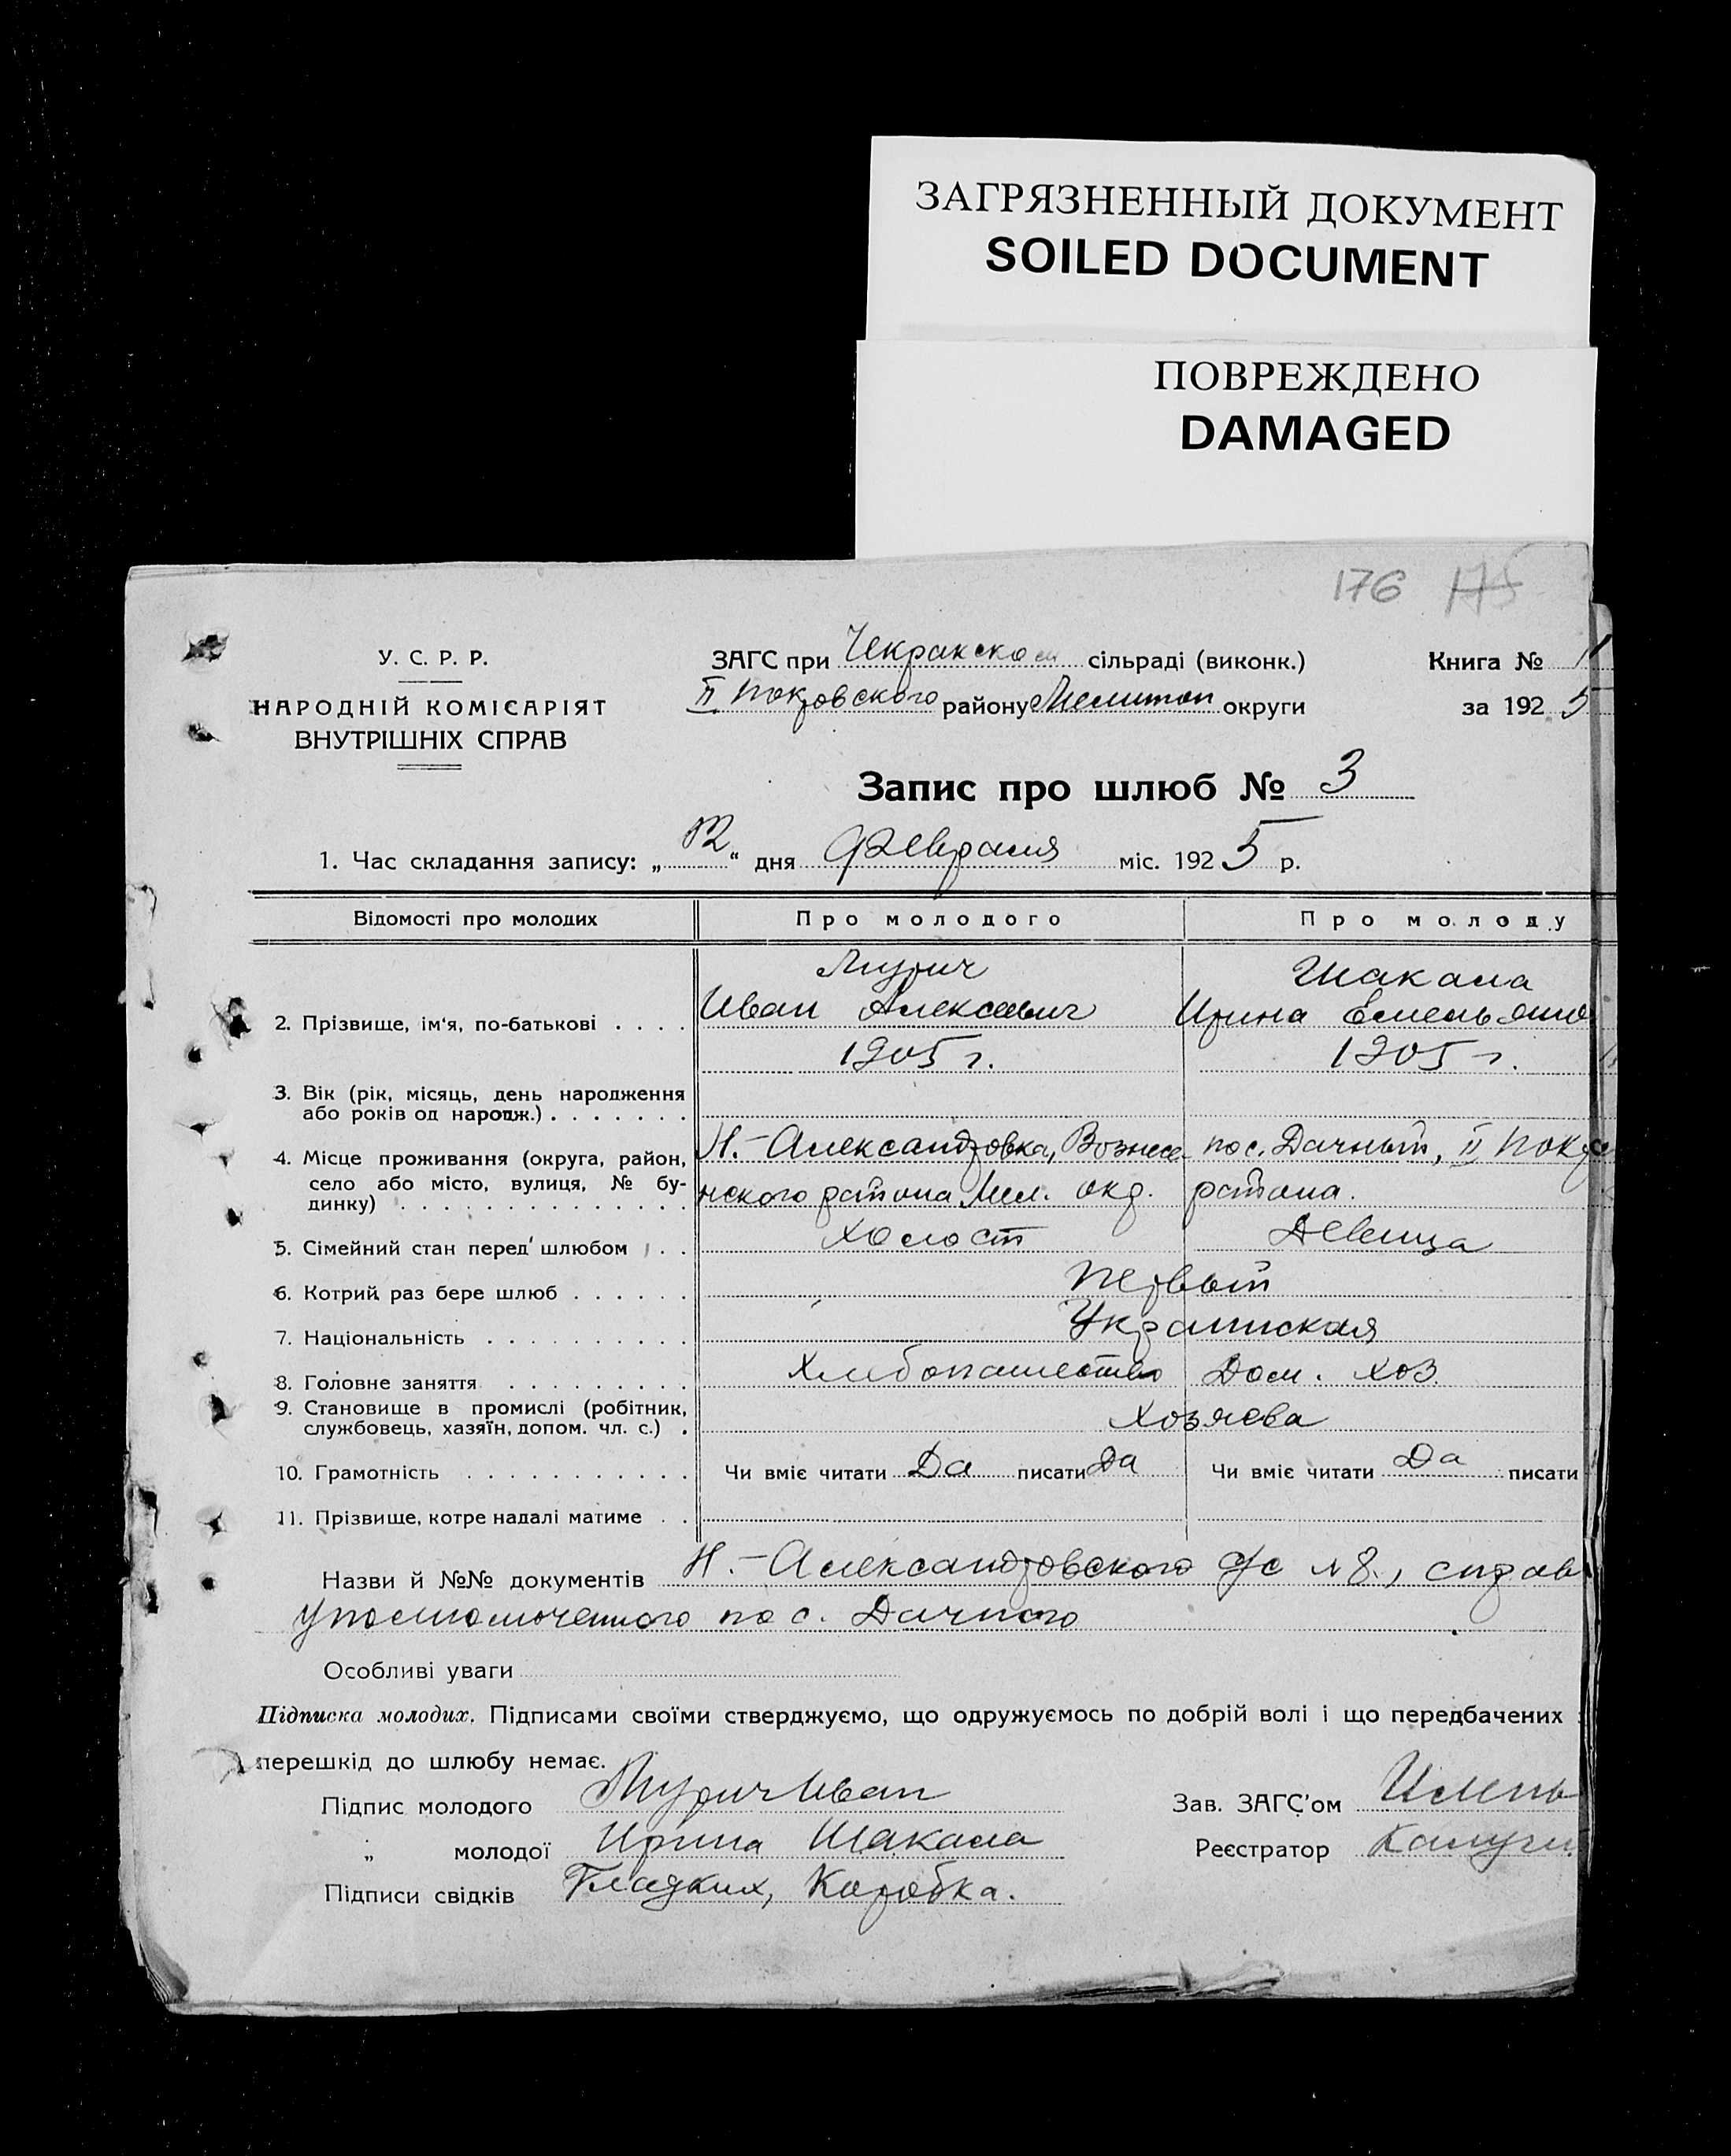 ЗАГРЯЗНЕННЫЙ ДОКУМЕНТ
SOILED DOCUMENT
ПОВРЕЖДЕНО
DAMAGED
176 175
У. С. Р. Р.
НАРОДНІЙ КОМІСАРІЯТ
ВНУТРІШНІХ СПРАВ
ЗАГС при Чекракском сільраді (виконк.)
II Покровского району Мелитоп округи
Книга №
за 1925
Запис про шлюб № 3
1. Час складання запису: „ “ дня февраля міс. 1925 р.
Відомості про молодих Про молодого Про молоду
Мурич Шакала
2. Прізвище, ім‘я, по-батькові . . . . Иван Алексеевич Ирина Емельяно
1905 г. 1905 г.
3. Вік (рік, місяць, день народження
або років од народж.) . . . . . . .
4. Місце проживання (округа, район, Н.-Александровка, Вознесе- пос. Дачный, II Покр
село або місто, вулиця, № бу- нского района Мел. окр. района.
динку) . . . . . . . . . . . . . .
5. Сімейний стан перед шлюбом . . холост Девица
6. Котрий раз бере шлюб . . . . . . Первый
7. Національність . . . . . . . . . . Украинская
8. Головне заняття . . . . . . . . . Хлебопашество Дом. хоз.
9. Становище в промислі (робітник,
службовець, хазяїн, допом. чл. с.) . Хозяева
10. Грамотність . . . . . . . . . . . Чи вміє читати Да писати Да Чи вміє читати Да писати
11. Прізвище, котре надалі матиме . .
Назви й №№ документів Н.-Александровского с/с №8., справ
уполномоченного пос. Дачного
Особливі уваги
Підписка молодих. Підписами своїми стверджуємо, що одружуємось по добрій волі і що передбачених
перешкід до шлюбу немає.
Підпис молодого Мурич Иван Зав. ЗАГС'ом
„ молодої Ирина Шакала Реєстратор Калуги
Підписи свідків Гладких, Коробка.